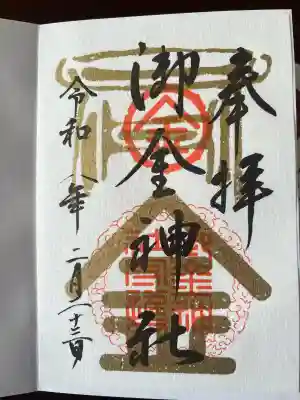 奉拝
御金神社
令和八年二月二十二日